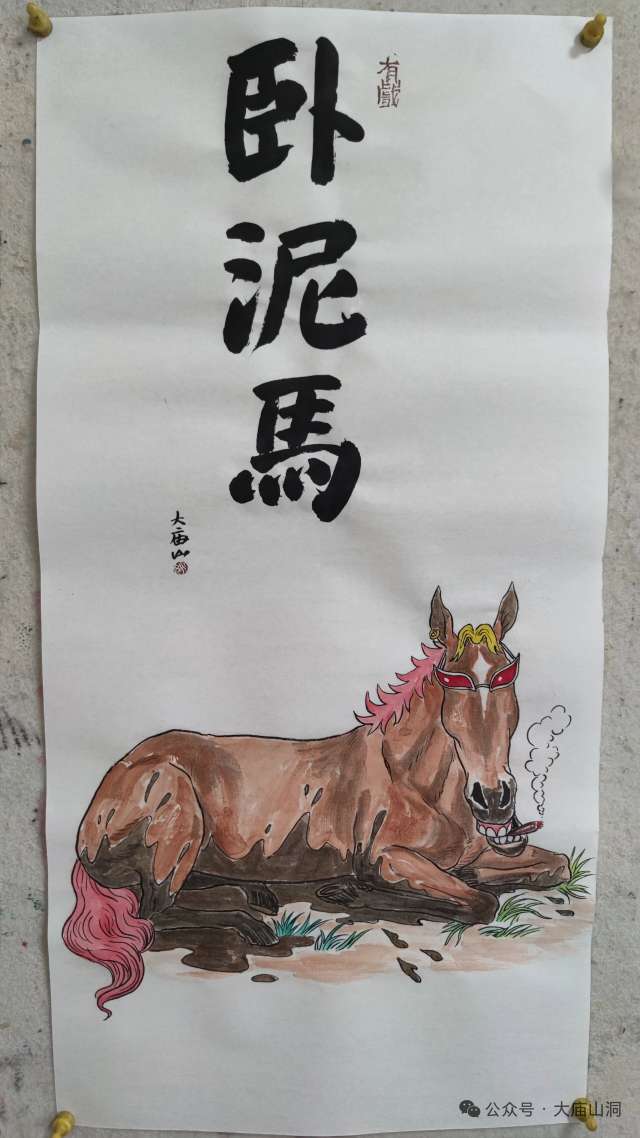 卧泥馬
有戲
大庙山
公众号·大庙山洞